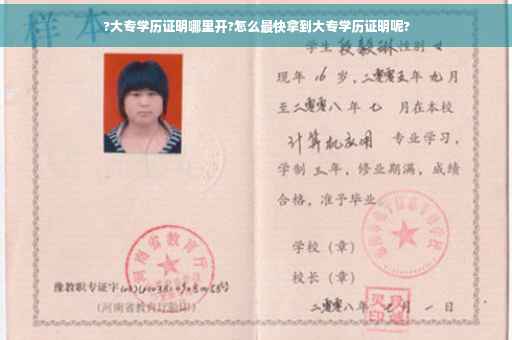 ?大专学历证明哪里开?怎么最快拿到大专学历证明呢?
样本
学生段毅琳性别女
现年16岁,二零零五年九月
至二零零八年七月在本校
计算机应用 专业学习,
学制三年,修业期满,成绩
合格,准予毕业
学校(章)
校长(章)
二零零八年 月一日
河南省教育厅
豫教职专证字
(河南省教育厅验印)